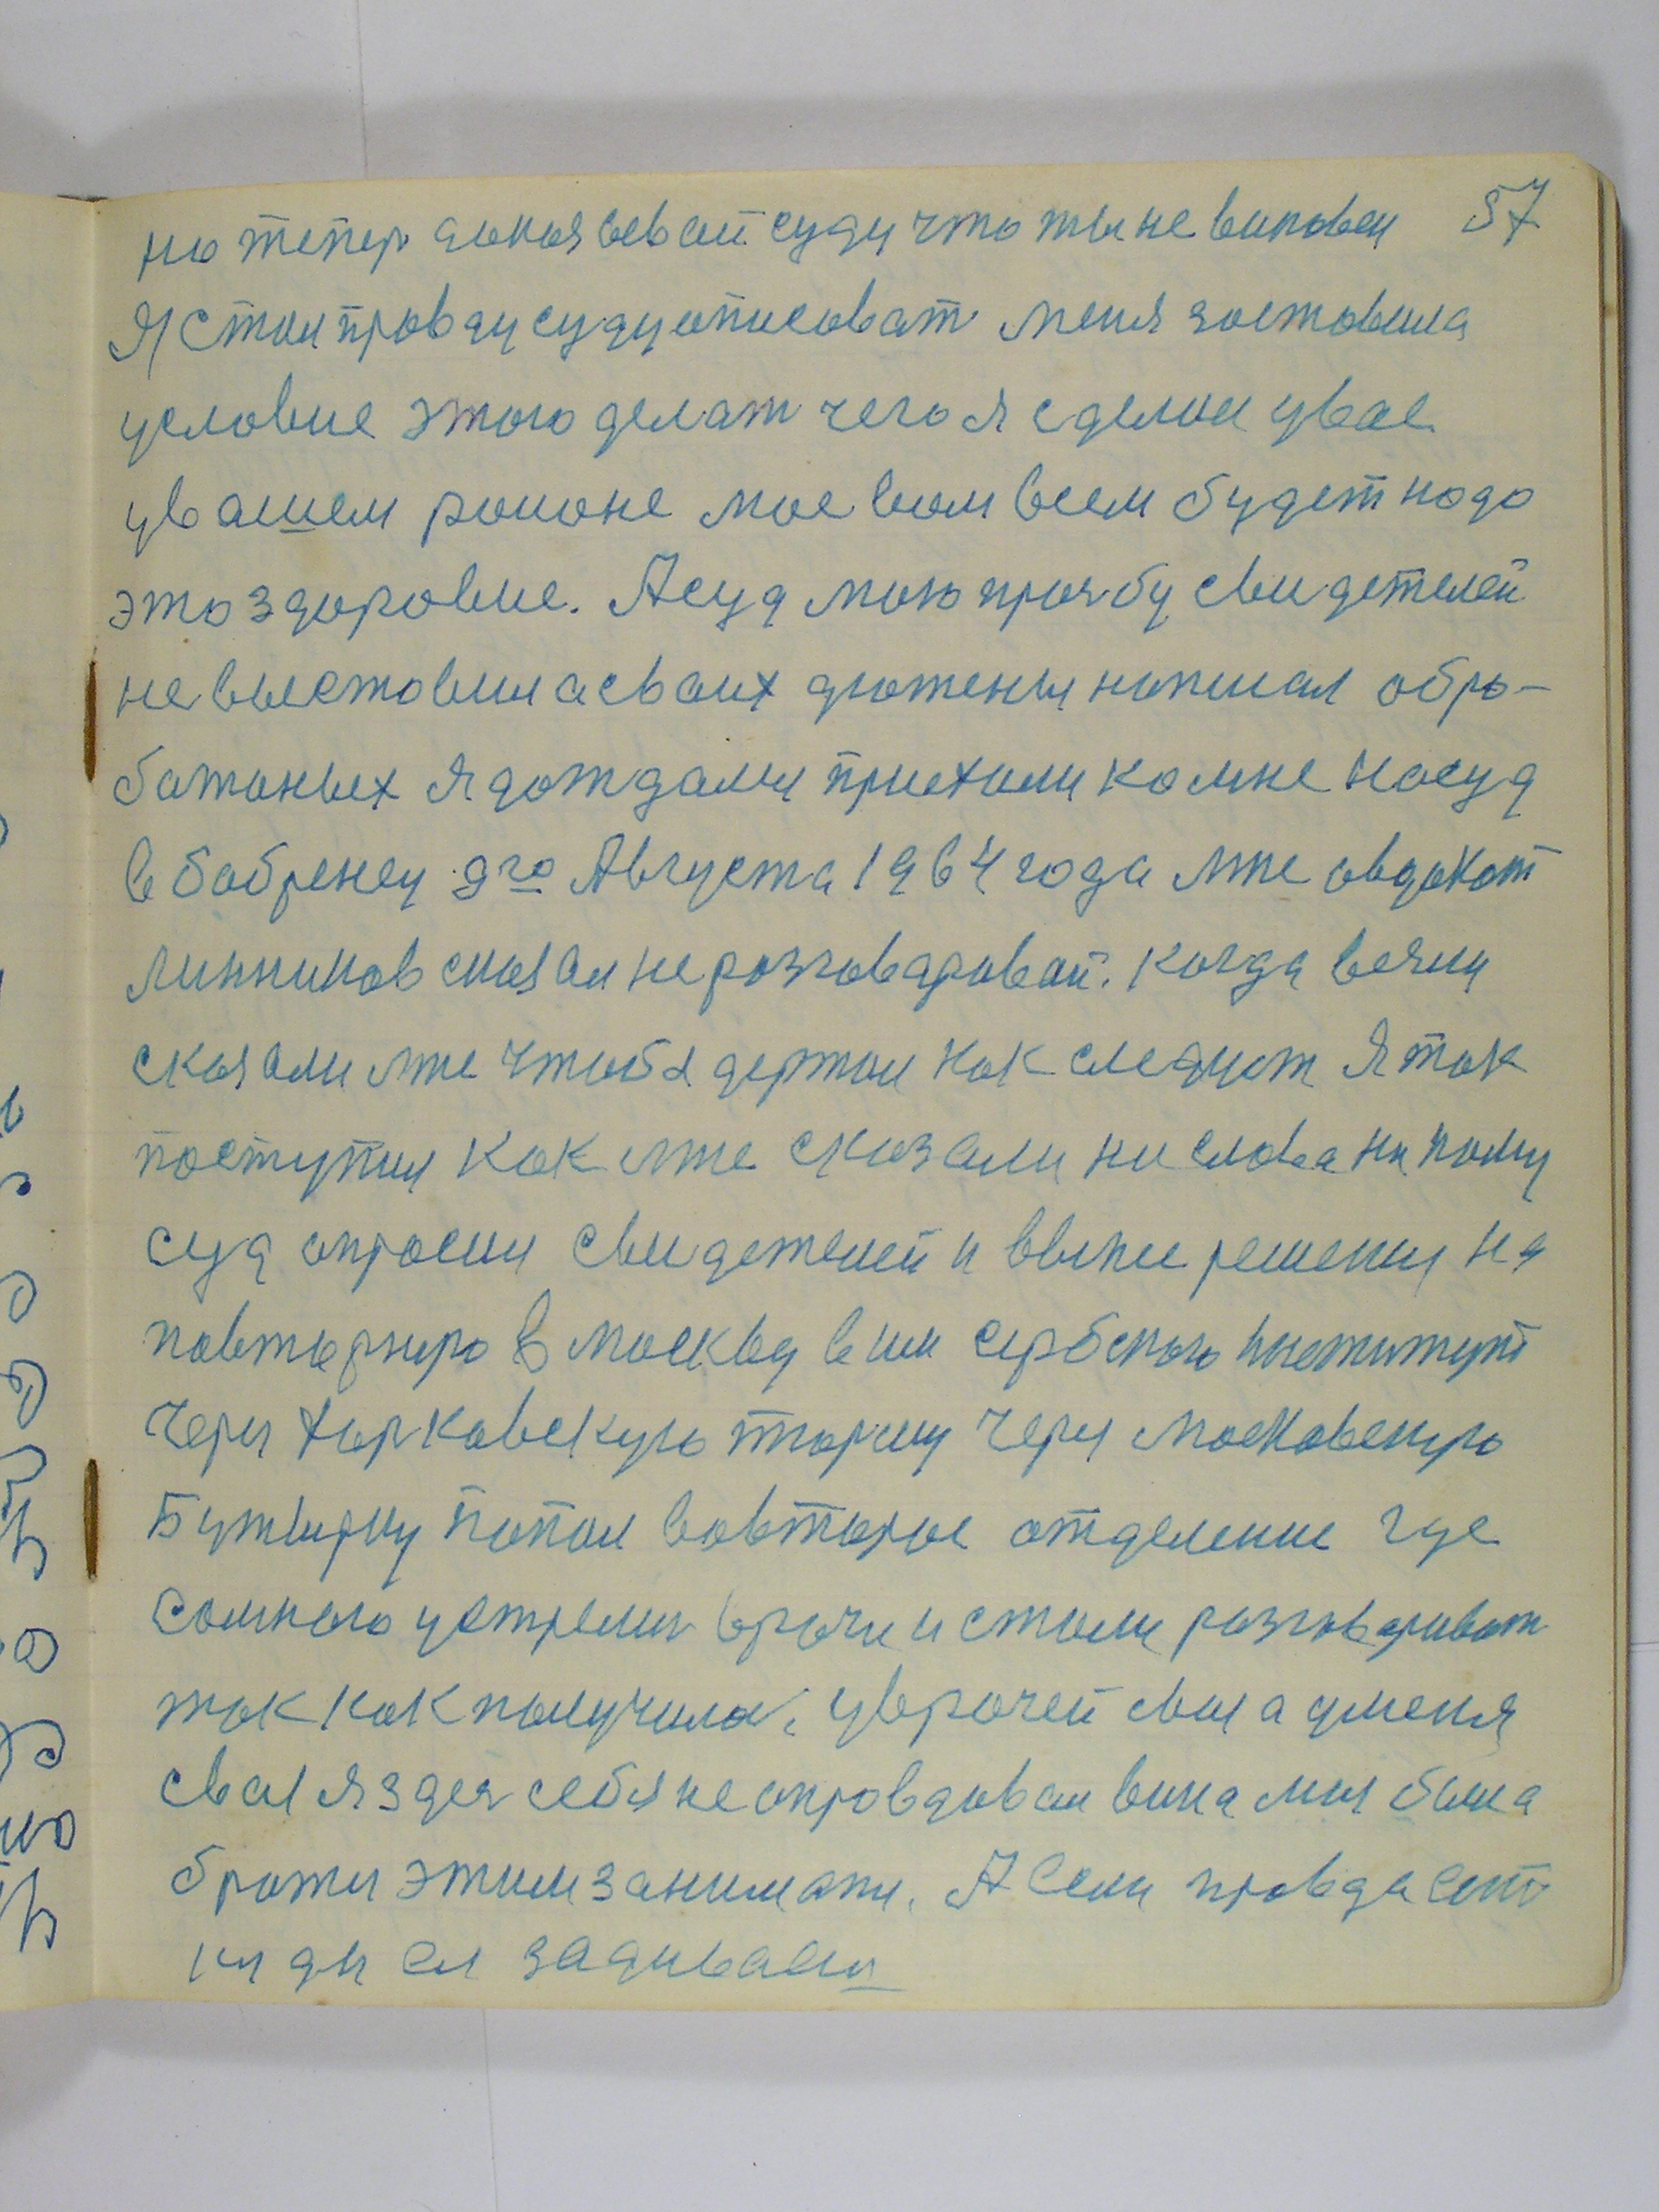 57
но тепер доказевай суду что ты не виповен
Я стал правду суду описоват меня зоставила
условие этого делат чего я сделал увас
увашем районе мое вам всем будет надо
это здоровие. А суд мою прозбу свидетелей
не выставил асваих дюжены написал обра-
батаных я дождался приехали комне насуд
в бобренец 9го Августа 1964 года мне овдакат
Линников сказал неразговаривай. когда взяли
сказали мне чтоб я держал как следует я так
поступил как мне сказали ни слова ни кому
суд опросил свидетелей и ввнне решения на
павторную в москву в им сербского институт
через харковскую тюрму через московскую
Бутырку попал вовторое отделение где
самного устрелис врачи и стали разговариват
так как получила, уврачей свая а уменя
свая я здес себя не оправдовал вина мая была
братся этим заниматся. А если правда ест
куды ея задивается